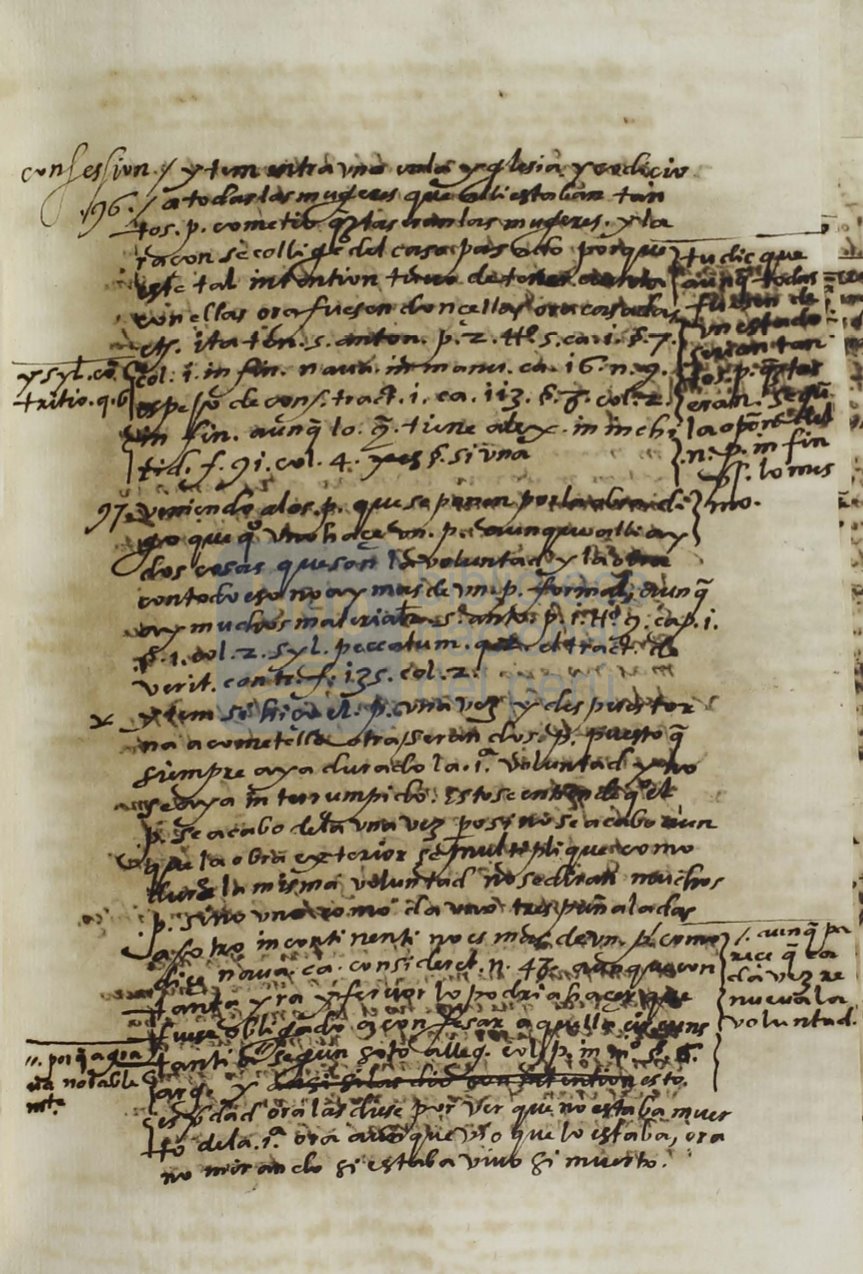 confession / ytem entra uno en la yglesia y codicio
96. / a todas las mugeres que alli estaban tan
tos. p. cometio q̃tas eran las mugeres. y la
raçon se collige del caso pasado porque
este tal intention tiene de tener
con ellas ora fuesen doncellas ora casadas
ita ten. s. anton. p. 2. tt.º 5. ca. 1. §. 7.
col. 1. in fin. nauar. in manu. ca. 16. n. 9.
espejo de conf. tract. 1. ca. 113. §. 3. col. 2.
in fin. aunq̃ lo. tiene alex. in
f. 91. col. 4. §. si una
tu dic que
aunq̃ todas
fuesen de
un estado
serian tan
tos. p. q̃ntas
eran. segũ
la
n. p. in fin
lo mes
mo.
y syl. cõ
tritio. q. 6
97. viniendo a los. p. que se ponen por la obra di
go que q.º uno hace un. p. aunque alli ay
dos cosas que son la voluntad y la obra
con todo eso no ay mas de un. p. formal, aunq̃
ay muchos materiales s. anto. p. 1. tt.º 9. cap. 1.
§. 1. col. 2. syl. peccatum. tract. de
verit. cont. f. 135. col. 2.
ytem si hiço el. p. una vez y despues tor
na a cometello otra seran dos. p. puesto q̃
siempre aya durado la. 1.ª voluntad y no
se aya interrumpido. esto se entiende q.º el
p. se acabo de la una vez po si no se acabo aun
que la obra exterior se multiplique como
dure la misma voluntad no se diran muchos
p. sino uno como da uno tres puñaladas
a otro incontinenti no es mas de un. p. como
diçe nauar. ca. consideret. n. 43. aunque con
tanta yra y feruor lo podria haçer que
fuese obligado a confesar aquella circuns
tantia segun soto alleg. col. p. in
y esto.
es verdad ora las diese por ver que no estaba muer
to de la. 1.ª ora aunque vio que lo estaba, ora
no mirando si estaba vivo si muerto.
/. aunq̃ pa
rece q̃ ca
da vez re
nueva la
voluntad.
//. porq̃ agra
via notable
mte